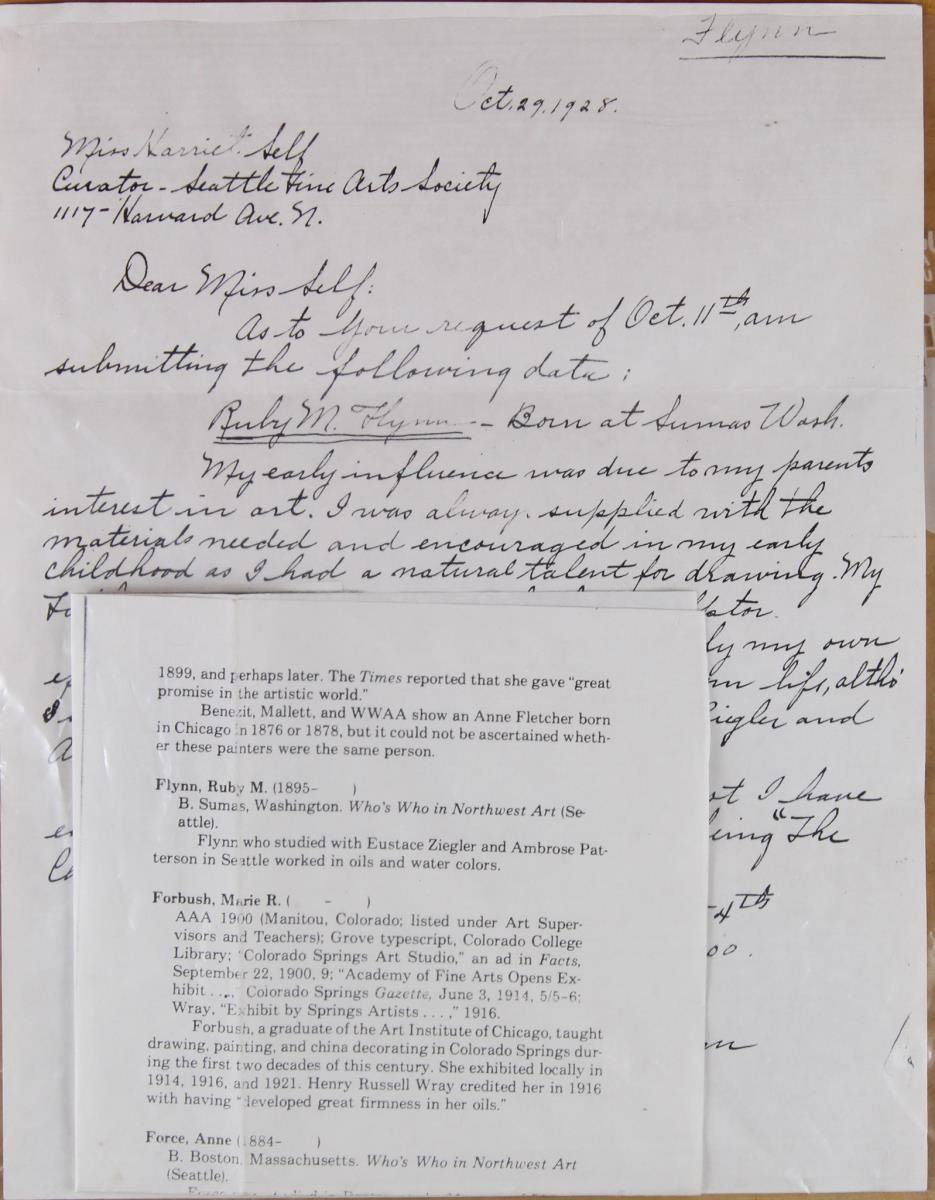 Flynn
Oct. 29, 1928.
Miss Harriet Self
Curator - Seattle Fine Arts Society
1117 - Harvard Ave. N.
Dear Miss Self:
As to your request of Oct. 11th, am
submitting the following data:
Ruby M. Flynn -- Born at Sumas Wash.
My early influence was due to my parents
interest in art. I was always supplied with the
materials needed and encouraged in my early
childhood as I had a natural talent for drawing. My
my own
life, altho'
Ziegler and
I have
"The
-4th
00.
1899, and perhaps later. The Times reported that she gave "great
promise in the artistic world."
Benezit, Mallett, and WWAA show an Anne Fletcher born
in Chicago in 1876 or 1878, but it could not be ascertained wheth-
er these painters were the same person.
Flynn, Ruby M. (1895- )
B. Sumas, Washington. Who's Who in Northwest Art (Se-
attle).
Flynn who studied with Eustace Ziegler and Ambrose Pat-
terson in Seattle worked in oils and water colors.
Forbush, Marie R. ( - )
AAA 1900 (Manitou, Colorado; listed under Art Super-
visors and Teachers); Grove typescript, Colorado College
Library; "Colorado Springs Art Studio," an ad in Facts,
September 22, 1900, 9; "Academy of Fine Arts Opens Ex-
hibit . . ., " Colorado Springs Gazette, June 3, 1914, 5/5-6;
Wray, "Exhibit by Springs Artists . . . ," 1916.
Forbush, a graduate of the Art Institute of Chicago, taught
drawing, painting, and china decorating in Colorado Springs dur-
ing the first two decades of this century. She exhibited locally in
1914, 1916, and 1921. Henry Russell Wray credited her in 1916
with having "developed great firmness in her oils."
Force, Anne (1884- )
B. Boston, Massachusetts. Who's Who in Northwest Art
(Seattle).